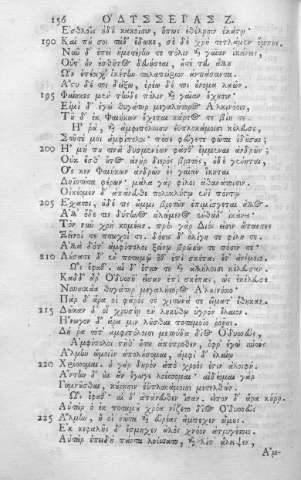 156 ὈΔΥΣΣΕΙΑΣ Ζ.
Ἐσθλοῖς ἠδὲ κακοῖσιν, ὅπως ἐθέλησιν ἑκάστῳ·
190 Καί που σοὶ τάδ' ἔδωκε, σὲ δὲ χρὴ τετλάμεν ἔμπης.
Νῦν δ' ἐπεὶ ἡμετέρην τε πόλιν καὶ γαῖαν ἱκάνεις,
Οὔτ' οὖν ἐσθῆτος δευήσεαι, οὔτέ τευ ἄλλου
Ὧν ἐπέοιχ' ἱκέτην ταλαπείριον ἀντιάσαντα.
Ἄστυ δέ τοι δείξω, ἐρέω δέ τοι οὔνομα λαῶν.
195 Φαίηκες μὲν τήνδε πόλιν καὶ γαῖαν ἔχουσιν·
Εἰμὶ δ' ἐγὼ θυγάτηρ μεγαλήτορος Ἀλκινόοιο,
Τοῦ δ' ἐκ Φαιήκων ἔχεται κάρτος τε βίη τε.
Ἦ ῥα, καὶ ἀμφιπόλοισιν ἐϋπλοκάμοισι κέλευσε,
Στῆτέ μοι ἀμφίπολοι· πόσε φεύγετε φῶτα ἰδοῦσαι;
200 Ἦ μή πού τινα δυσμενέων φάσθ' ἔμμεναι ἀνδρῶν;
Οὐκ ἔσθ' οὗτος ἀνὴρ διερὸς βροτὸς, οὐδὲ γένηται,
Ὅς κεν Φαιήκων ἀνδρῶν ἐς γαῖαν ἵκηται
Δηϊοτῆτα φέρων· μάλα γὰρ φίλοι ἀθανάτοισιν.
Οἰκέομεν δ' ἀπάνευθε πολυκλύστῳ ἐνὶ πόντῳ
205 Ἔσχατοι, οὐδέ τις ἄμμι βροτῶν ἐπιμίσγεται ἄλλος.
Ἀλλ' ὅδε τις δύστηνος ἀλώμενος ἐνθάδ' ἱκάνει·
Τὸν νῦν χρὴ κομέειν, πρὸς γὰρ Διός εἰσιν ἅπαντες
Ξεῖνοί τε πτωχοί τε· δόσις δ' ὀλίγη τε φίλη τε.
Ἀλλὰ δότ' ἀμφίπολοι ξείνῳ βρῶσίν τε πόσιν τε·
210 Λούσατέ τ' ἐν ποταμῷ ὅθ' ἐπὶ σκέπας ἔστ' ἀνέμοιο.
Ὣς ἔφαθ'. αἱ δ' ἔσταν τε καὶ ἀλλήλῃσι κέλευσαν.
Κὰδδ' ἄρ' Ὀδυσσῆ' εἷσαν ἐπὶ σκέπας, ὡς ἐκέλευσε
Ναυσικάα θυγάτηρ μεγαλήτορος Ἀλκινόοιο,
Πὰρ δ' ἄρα οἱ φᾶρός τε χιτῶνά τε εἵματ' ἔθηκαν.
215 Δῶκαν δὲ χρυσέῃ ἐν ληκύθῳ ὑγρὸν ἔλαιον.
Ἤνωγον δ' ἄρα μιν λοῦσθαι ποταμοῖο ῥοῇσι.
Δή ῥα τότ' ἀμφιπόλοισι μετηύδα δῖος Ὀδυσσεὺς,
Ἀμφίπολοι στῆθ' οὕτω ἀπόπροθεν, ὄφρ' ἐγὼ αὐτὸς
Ἅλμην ὤμοιιν ἀπολούσομαι, ἀμφὶ δ' ἐλαίῳ
220 Χρίσομαι. ἦ γὰρ δηρὸν ἀπὸ χροός ἐστιν ἀλοιφή.
Ἄντην δ' οὐκ ἂν ἔγωγε λοέσσομαι· αἰδέομαι γὰρ
Γυμνοῦσθαι, κούρῃσιν ἐϋπλοκάμοισι μετελθών.
Ὣς ἔφαθ'. αἱ δ' ἀπάνευθεν ἴσαν, εἶπον δ' ἄρα κούρῃ.
Αὐτὰρ ὁ ἐκ ποταμοῦ χρόα νίζετο δῖος Ὀδυσσεὺς
225 Ἅλμην, ἥ οἱ νῶτα καὶ εὐρέας ἄμπεχεν ὤμους.
Ἐκ κεφαλῆς δ' ἔσμηχεν ἁλὸς χνόον ἀτρυγέτοιο.
Αὐτὰρ ἐπειδὴ πάντα λοέσσατο, καὶ λίπ' ἄλειψεν,
Ἀμ-